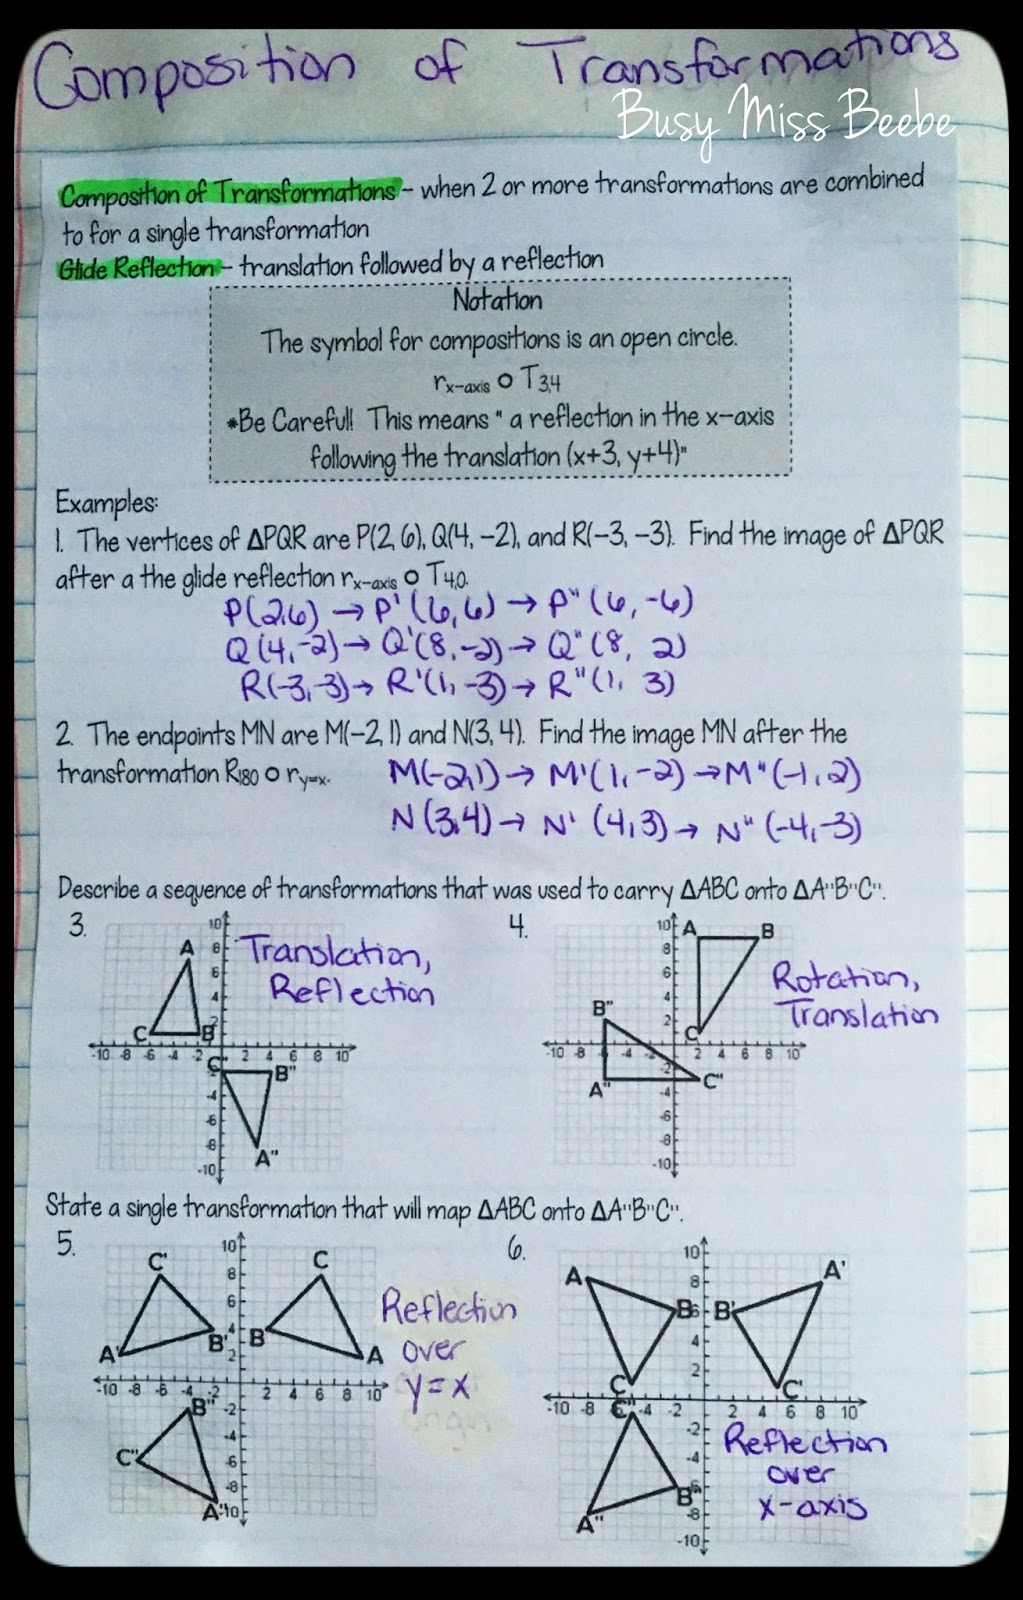 Composition of Transformations
Busy Miss Beebe
Composition of Transformations - when 2 or more transformations are combined
to for a single transformation
Glide Reflection - translation followed by a reflection
Notation
The symbol for compositions is an open circle.
rx-axis o T3,4
*Be Careful! This means " a reflection in the x-axis
following the translation (x+3, y+4)"
Examples:
1. The vertices of ΔPQR are P(2, 6), Q(4, -2), and R(-3, -3). Find the image of ΔPQR
after a the glide reflection rx-axis o T4,0.
P(2,6) → P' (6,6) → P" (6, -6)
Q (4,-2) → Q'(8,-2) → Q" (8, 2)
R(-3,-3) → R'(1,-3) → R"(1, 3)
2. The endpoints MN are M(-2, 1) and N(3, 4). Find the image MN after the
transformation R180 o ry=x.
M(-2,1) → M'(1,-2) → M"(-1,2)
N (3,4) → N' (4,3) → N" (-4,-3)
Describe a sequence of transformations that was used to carry ΔABC onto ΔA"B"C".
3.
10 8 6 4 2 -2 -4 -6 -8 -10
-10 -8 -6 -4 -2 2 4 6 8 10
A
C B
C" B"
A"
Translation,
Reflection
4.
10 8 6 4 2 -2 -4 -6 -8 -10
-10 -4 -2 2 4 6 8 10
A B
C
B"
A" C"
Rotation,
Translation
State a single transformation that will map ΔABC onto ΔA"B"C".
5.
10 8 6 4 2 -2 -4 -6 -8 -10
-10 -8 -6 -4 -2 2 4 6 8 10
C' C
A' B' B A
B"
C"
A"
Reflection
over
y=x
6.
10 8 6 4 2 -2 -4 -6 -8 -10
-10 -8 -6 -4 -2 2 4 6 8 10
A A'
B B'
C C'
C"
B"
A"
Reflection
over
x-axis